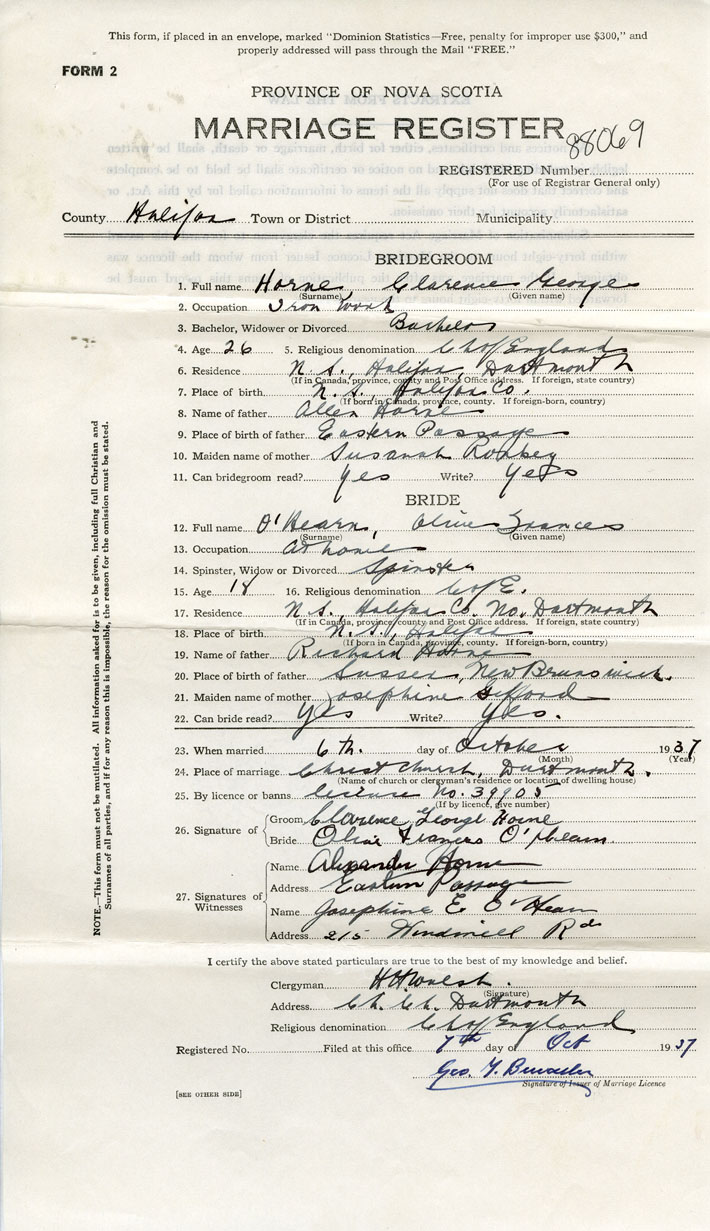 This form, if placed in an envelope, marked "Dominion Statistics—Free, penalty for improper use $300," and
properly addressed will pass through the Mail "FREE."
FORM 2
PROVINCE OF NOVA SCOTIA
MARRIAGE REGISTER
88069
REGISTERED Number
(For use of Registrar General only)
County Halifax Town or District Municipality
BRIDEGROOM
1. Full name Horne Clarence George
(Surname) (Given name)
2. Occupation Iron Work
3. Bachelor, Widower or Divorced Bachelor
4. Age 26 5. Religious denomination Ch of England
6. Residence N. S., Halifax, Dartmouth
(If in Canada, province, county and Post Office address. If foreign, state country)
7. Place of birth N. S., Halifax Co.
(If born in Canada, province, county. If foreign-born, country)
8. Name of father Allen Horne
9. Place of birth of father Eastern Passage
10. Maiden name of mother Susanah
11. Can bridegroom read? Yes Write? Yes
BRIDE
12. Full name O'Hearn, Olive Frances
(Surname) (Given name)
13. Occupation At home
14. Spinster, Widow or Divorced Spinster
15. Age 18 16. Religious denomination C of E.
17. Residence N. S., Halifax Co. No. Dartmouth
(If in Canada, province, county and Post Office address. If foreign, state country)
18. Place of birth N. S., Halifax
(If born in Canada, province, county. If foreign-born, country)
19. Name of father Richard Horne
20. Place of birth of father Sussex, New Brunswick.
21. Maiden name of mother Josephine Gifford
22. Can bride read? Yes Write? Yes.
23. When married 6th. day of October 1937
(Month) (Year)
24. Place of marriage Christ Church, Dartmouth.
(Name of church or clergyman's residence or location of dwelling house)
25. By licence or banns license No. 39905
(If by licence, give number)
26. Signature of Groom Clarence George Horne
Bride Olive Frances O'Hearn
27. Signatures of Witnesses
Name Alexander Horne
Address Eastern Passage
Name Josephine E O'Hearn
Address 215 Windmill Rd
I certify the above stated particulars are true to the best of my knowledge and belief.
Clergyman H H Walsh
(Signature)
Address Ch. Ch. Dartmouth
Religious denomination Ch of England
Registered No. Filed at this office 7th day of Oct 1937
Geo.
Signature of Issuer of Marriage Licence
[SEE OTHER SIDE]
NOTE.—This form must not be mutilated. All information asked for is to be given, including full Christian and
Surnames of all parties, and if for any reason this is impossible, the reason for the omission must be stated.